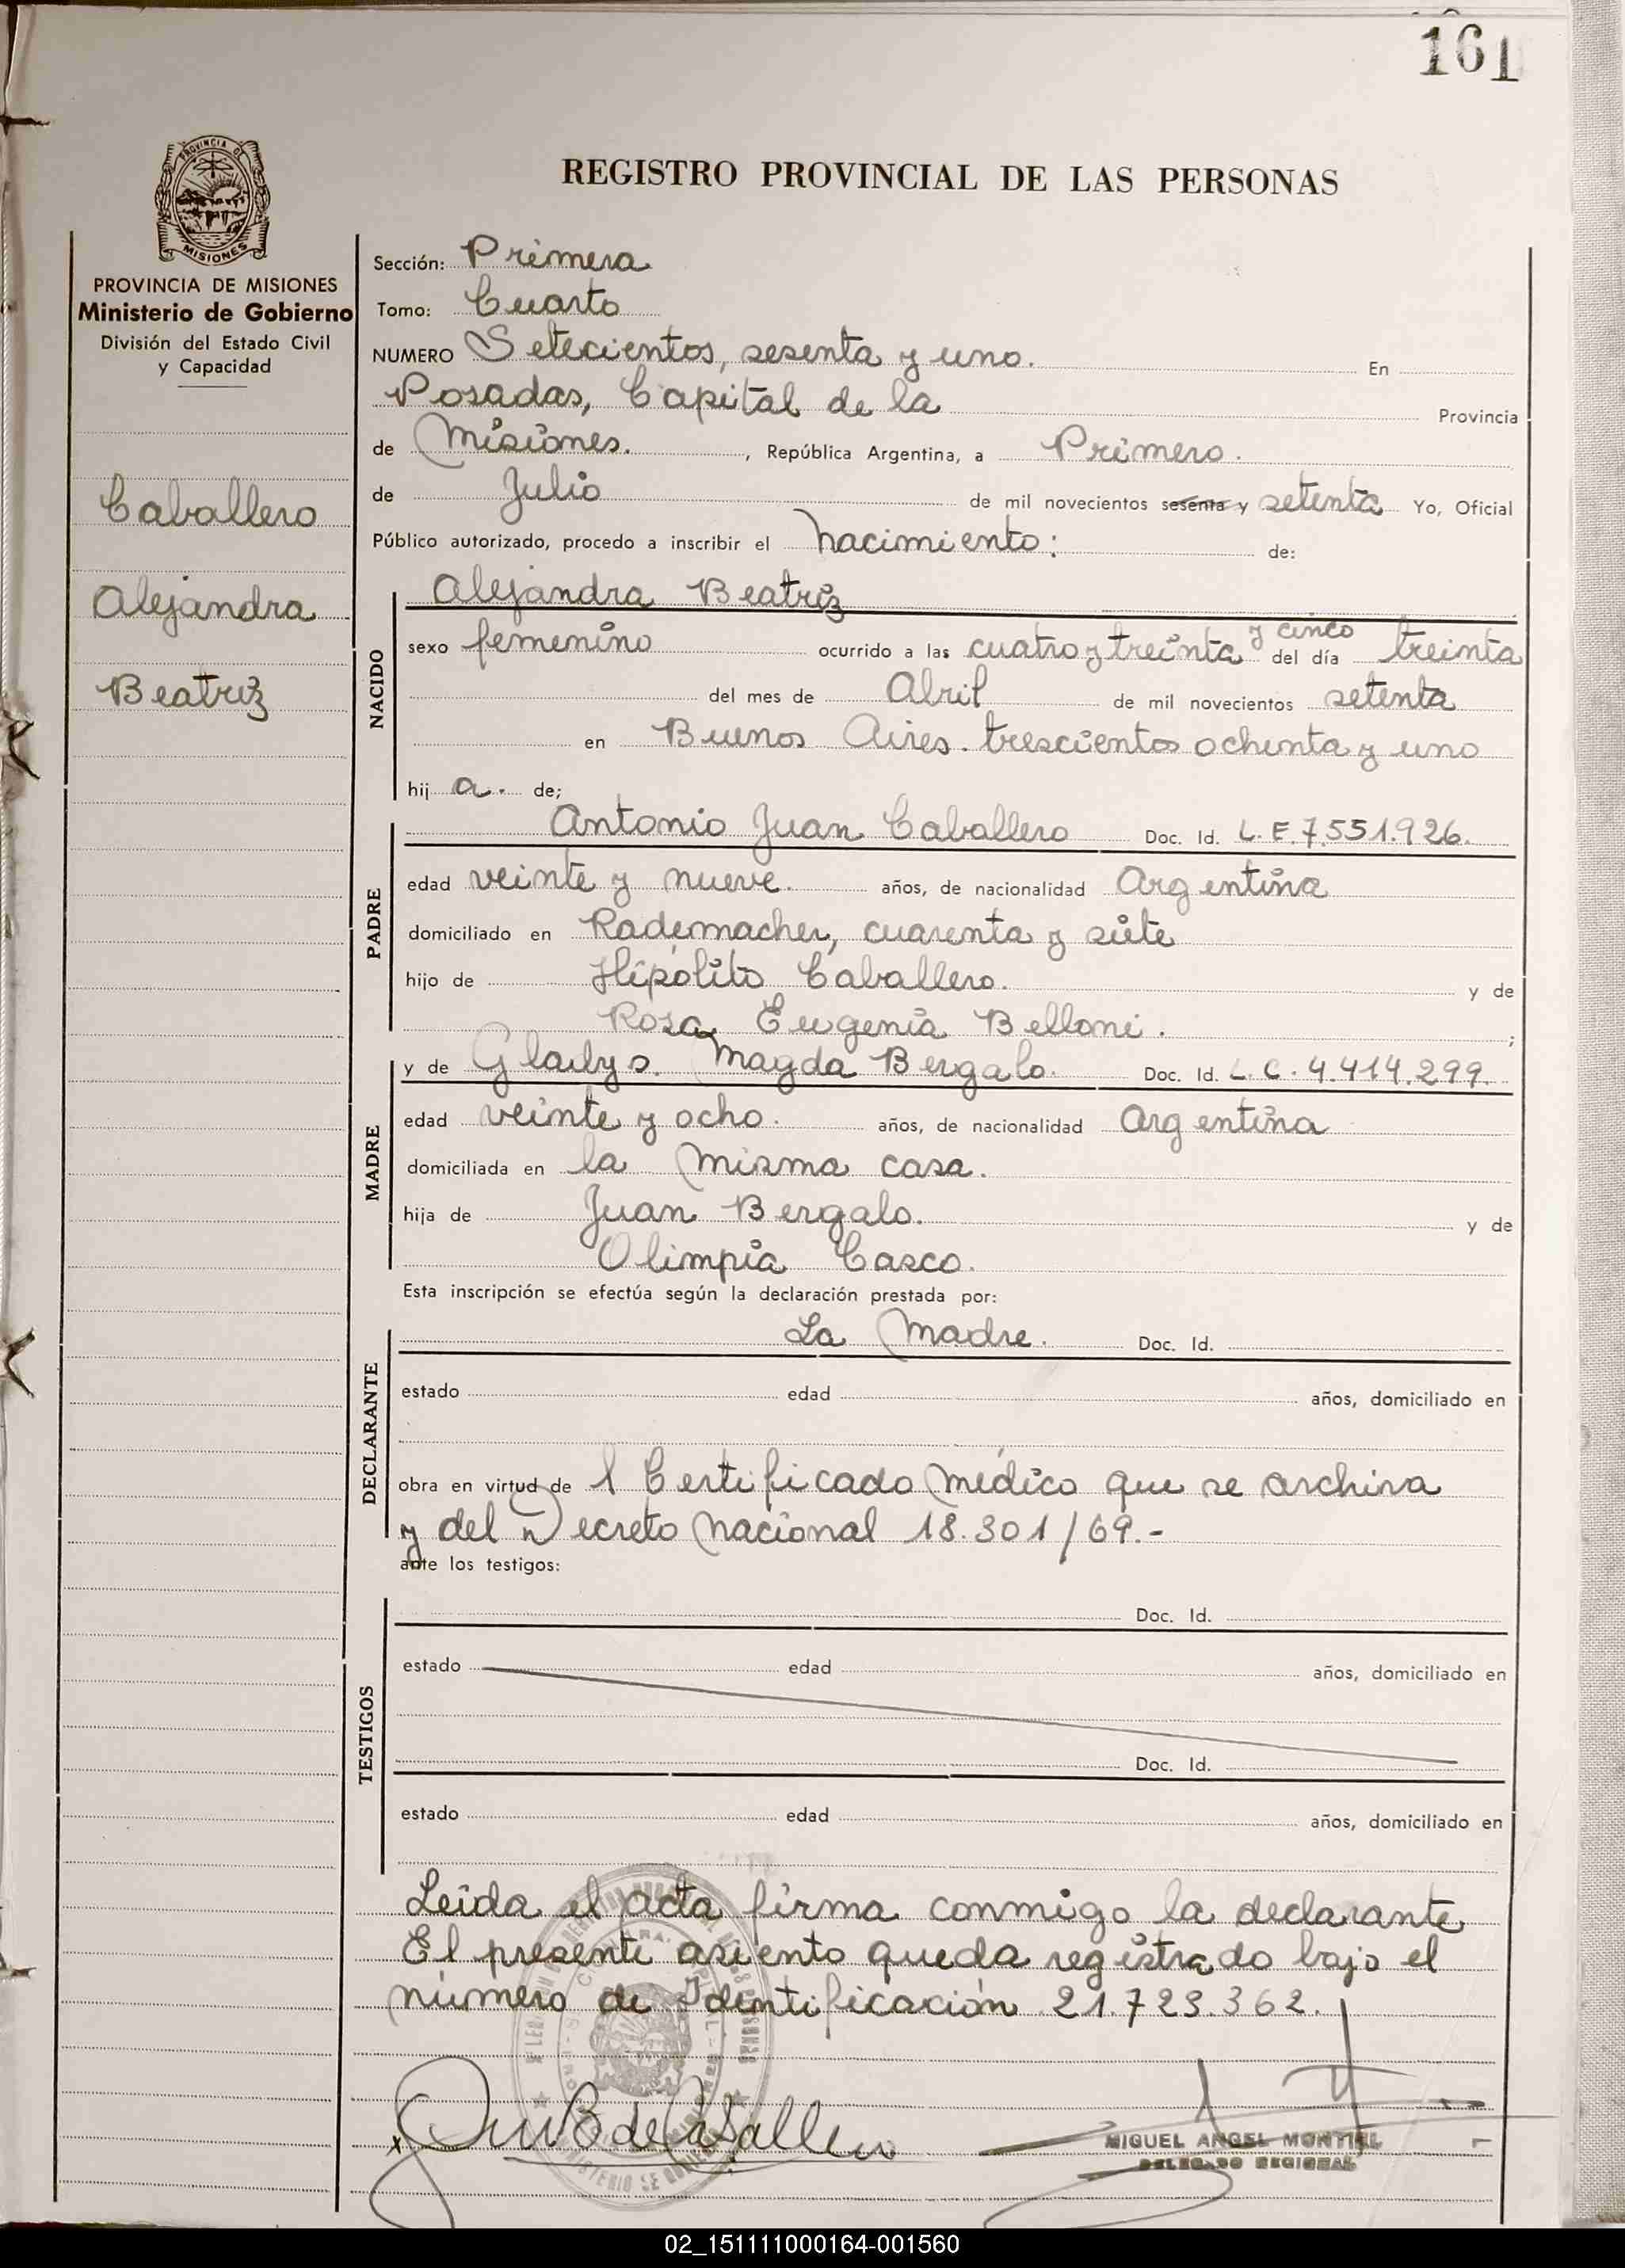 161
PROVINCIA DE
MISIONES
PROVINCIA DE MISIONES
Ministerio de Gobierno
División del Estado Civil
y Capacidad
Caballero
Alejandra
Beatriz
REGISTRO PROVINCIAL DE LAS PERSONAS
Sección: Primera
Tomo: Cuarto
NUMERO Setecientos, sesenta y uno. En
Posadas, Capital de la Provincia
de Misiones. , República Argentina, a Primero.
de Julio de mil novecientos sesenta y setenta Yo, Oficial
Público autorizado, procedo a inscribir el nacimiento: de:
NACIDO
Alejandra Beatriz
sexo femenino ocurrido a las cuatro y treinta y cinco del día treinta
del mes de Abril de mil novecientos setenta
en Buenos Aires. trescientos ochenta y uno
hij a. de;
PADRE
Antonio Juan Caballero Doc. Id. L.E.7.551.926.
edad veinte y nueve. años, de nacionalidad Argentina
domiciliado en Rademacher, cuarenta y siete
hijo de Hipólito Caballero. y de
Rosa Eugenia Belloni. ;
MADRE
y de Gladys. Magda Bergalo. Doc. Id. L.C.4.414.299.
edad veinte y ocho. años, de nacionalidad Argentina
domiciliada en la misma casa.
hija de Juan Bergalo. y de
Olimpia Casco.
Esta inscripción se efectúa según la declaración prestada por:
DECLARANTE
La Madre. Doc. Id.
estado edad años, domiciliado en
obra en virtud de l Certificado Médico que se archiva
y del Decreto Nacional 18.301/69.-
ante los testigos:
TESTIGOS
Doc. Id.
estado edad años, domiciliado en
Doc. Id.
estado edad años, domiciliado en
Leída el acta firma conmigo la declarante
El presente asiento queda registrado bajo el
número de Identificación 21.723.362.
MIGUEL ANGEL MONTIEL
DELEGADO REGIONAL
02_151111000164-001560